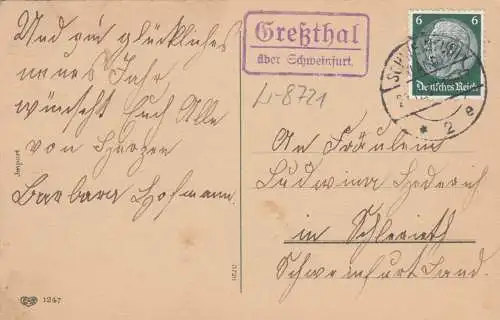 Und ein glückliches
neues Jahr
wünscht Euch Alle
von Herzen
Barbara Hofmann.
Import
1247
Greßthal
über Schweinfurt.
Li-8721
6 6
Deutsches Reich
* 2 e
An Fräulein
Ludwina
in Schleerieth
Schweinfurt Land.